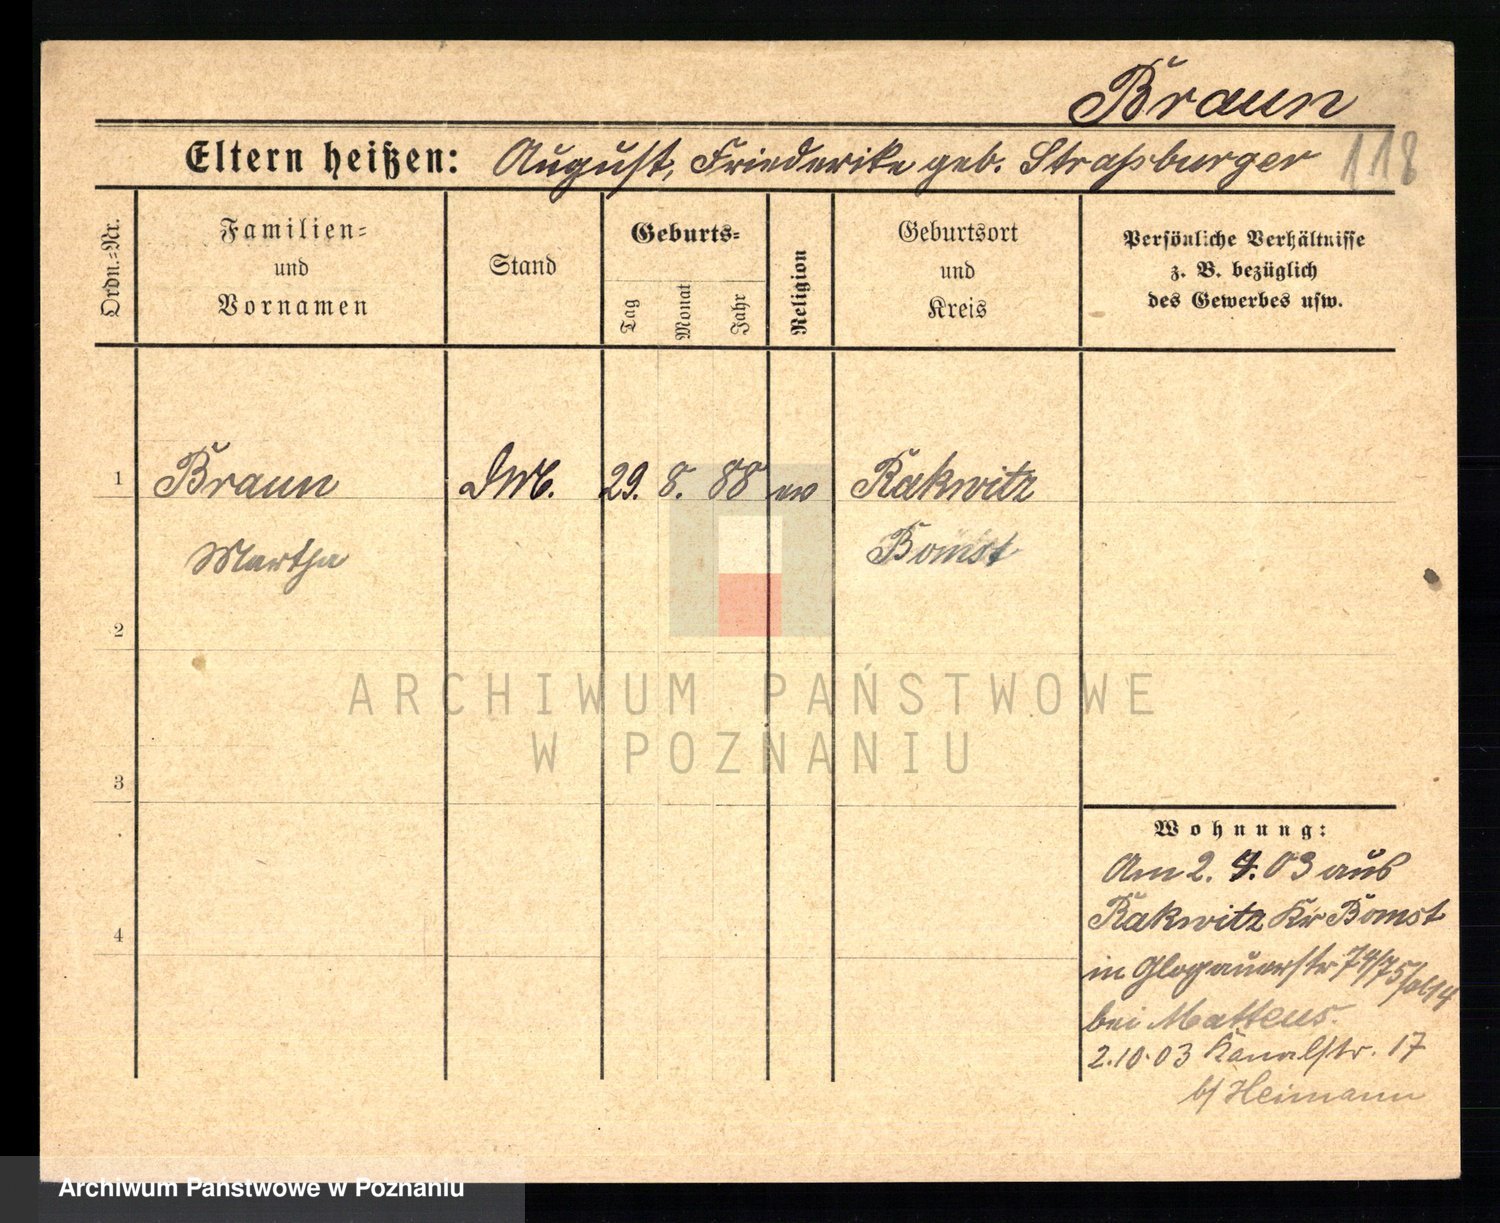 Braun
Eltern heißen: August, Friederike geb. Straßburger 118
Ordn.=Nr.
Familien=
und
Vornamen
Stand
Geburts=
Tag
Monat
Jahr
Religion
Geburtsort
und
Kreis
Persönliche Verhältnisse
z. B. bezüglich
des Gewerbes usw.
1 Braun 29. 8. 88 ev Rakwitz
Martha Bomst
2
3
4
Wohnung:
Am 2. 03 aus
Rakwitz Kr Bomst
in Glogauerstr 74/75
bei Matteus.
2.10.03 Kanalstr. 17
b/ Heimann
ARCHIWUM PAŃSTWOWE
W POZNANIU
Archiwum Państwowe w Poznaniu